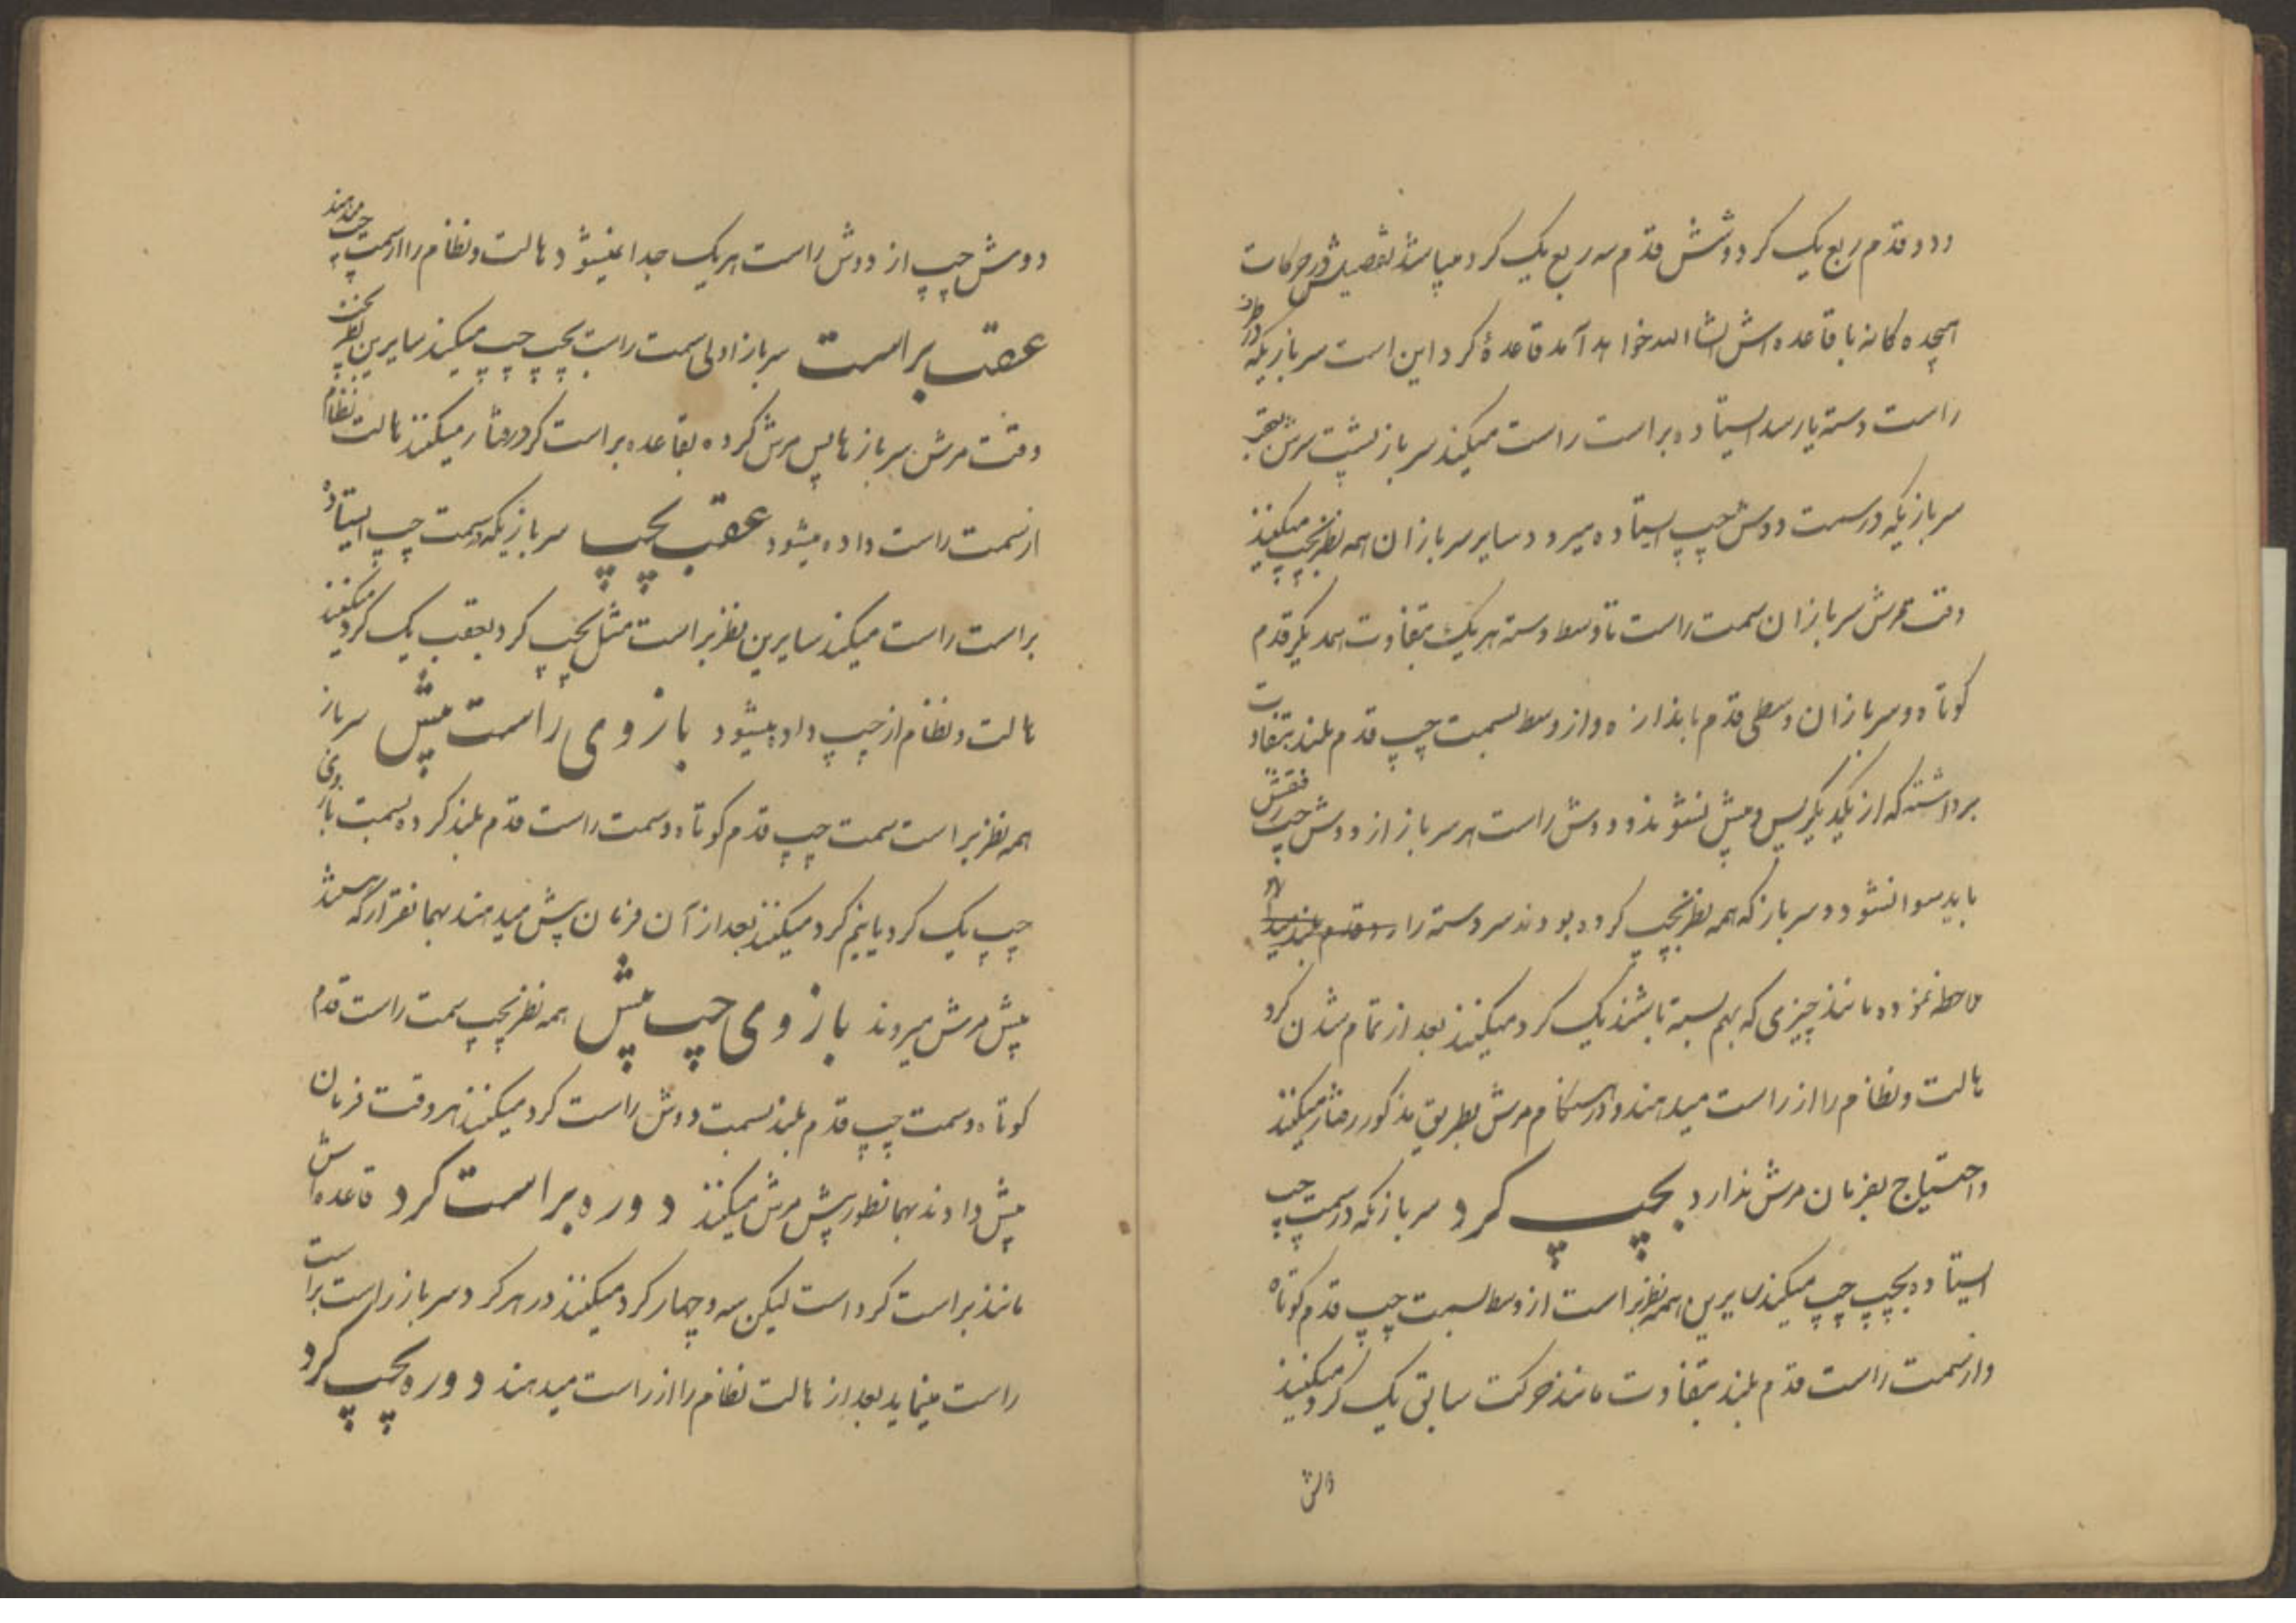 و دو قدم ربع یک کرد و شش قدم سه ربع یک کرد میباشد تفصیلش در حرکات
هیجده کانه با قاعده اش انشا الله خواهد آمد قاعدهٔ کرد این است سربازیکه در طرف
راست دسته یا رسد ایستاده براست راست میکند سرباز پشت سرش بعقب
سربازیکه در سمت دوش چپ ایستاده میرود و سایر سربازان همه نظر بچپ میکنند
وقت مرش سربازان سمت راست تا وسط دسته هر یک بتفاوت همدیگر قدم
کوتاه و سربازان وسطی قدم باندازه و از وسط بسمت چپ قدم بلند بتفاوت
برداشته که از یکدیگر پس و پیش نشوند و دوش راست هر سرباز از دوش چپ رفیقش
باید سوا نشود و سرباز که همه نظر بچپ کرده بودند سر دسته را
ملاحظه نموده مانند چیزی که بهم بسته باشند یک کرد میکنند بعد از تمام شدن کرد
هالت و نظام را از راست میدهند و در هنکام مرش بطریق مذکور رفتار میکنند
و احتیاج بفرمان مرش ندارد بچپ کرد سربازیکه در سمت چپ
ایستاده بچپ چپ میکند سایرین همه نظر براست از وسط بسمت چپ قدم کوتاه
و از سمت راست قدم بلند بتفاوت مانند حرکت سابق یک کرد میکنند
دوش چپ از دوش راست هر یک جدا نمیشود هالت و نظام را از سمت چپ میدهند
عقب براست سرباز اولی سمت راست بچپ چپ میکند سایرین نظر بچپ
وقت مرش سربازها پس مرش کرده بقاعده براست کرد رفتار میکنند هالت نظام
از سمت راست داده میشود عقب بچپ سربازیکه سمت چپ ایستاده
براست راست میکند سایرین نظر براست مثل بچپ کرد بعقب یک کرد میکنند
هالت و نظام از چپ داده میشود بازوی راست پیش سرباز
همه نظر براست سمت چپ قدم کوتاه و سمت راست قدم بلند کرده بسمت بازوی
چپ یک کرد یا نیم کرد میکنند بعد از آن فرمان پیش میدهند بهمانقرار که هستند
پیش مرش میروند بازوی چپ پیش همه نظر بچپ سمت راست قدم
کوتاه و سمت چپ قدم بلند بسمت دوش راست کرد میکنند هر وقت فرمان
پیش دادند بهمانطور پیش مرش میکنند دوره براست کرد قاعده اش
مانند براست کرد است لیکن سه و چهار کرد میکنند در هر کرد سرباز راست براست
راست مینماید بعد از هالت نظام را از راست میدهند دوره بچپ کرد